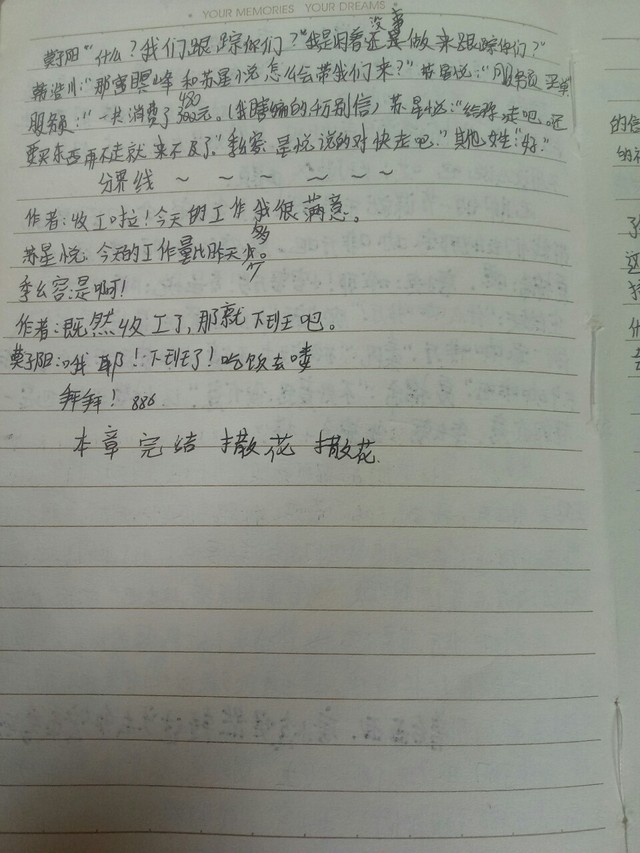 YOUR MEMORIES YOUR DREAMS
莫子阳"什么？我们跟踪你们？""我是闲着没事做来跟踪你们？"
韩浩川:"那雷暝峰和苏星悦怎么会带我们来？"苏星悦:"服务员 买单
服务员:"一共消费了480元。(我瞎编的千万别信)苏星悦:"给你走吧。还
要买东西再不走就来不及了。"季幺容:星悦说的对快走吧。"其他女生:"好"
分界线 ~ ~ ~ ~ ~ ~
作者:收工啦!今天的工作我很满意。
苏星悦:今天的工作量比昨天多。
季幺容:是啊!
作者:既然收工了,那就下班吧。
莫子阳:哦耶!下班了!吃饭去喽
拜拜! 886
本章完结 撒花 撒花
的信
的